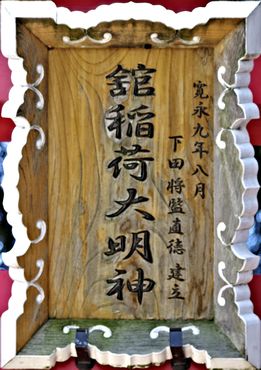 寛永九年八月
下田将監直徳建立
舘稲荷大明神